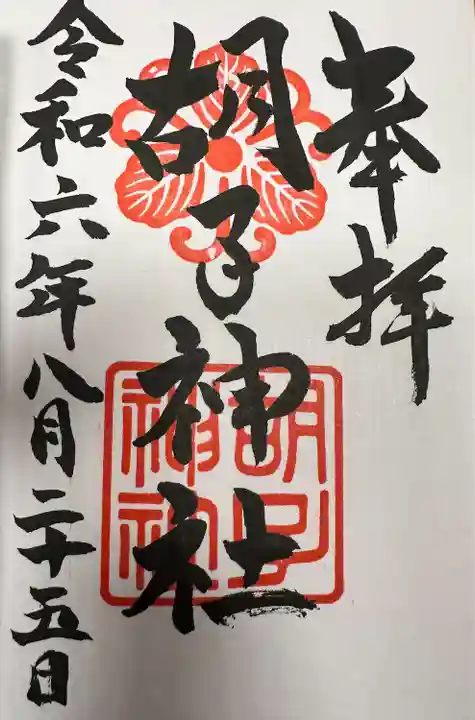 奉拝
胡子神社
胡子
神社
令和六年八月二十五日